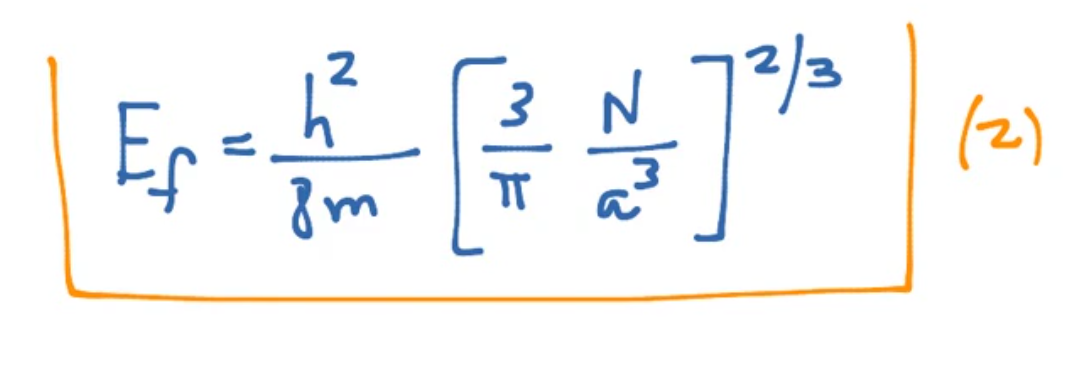 E_f = h^2/8m [3/π N/a^3]^2/3 (2)